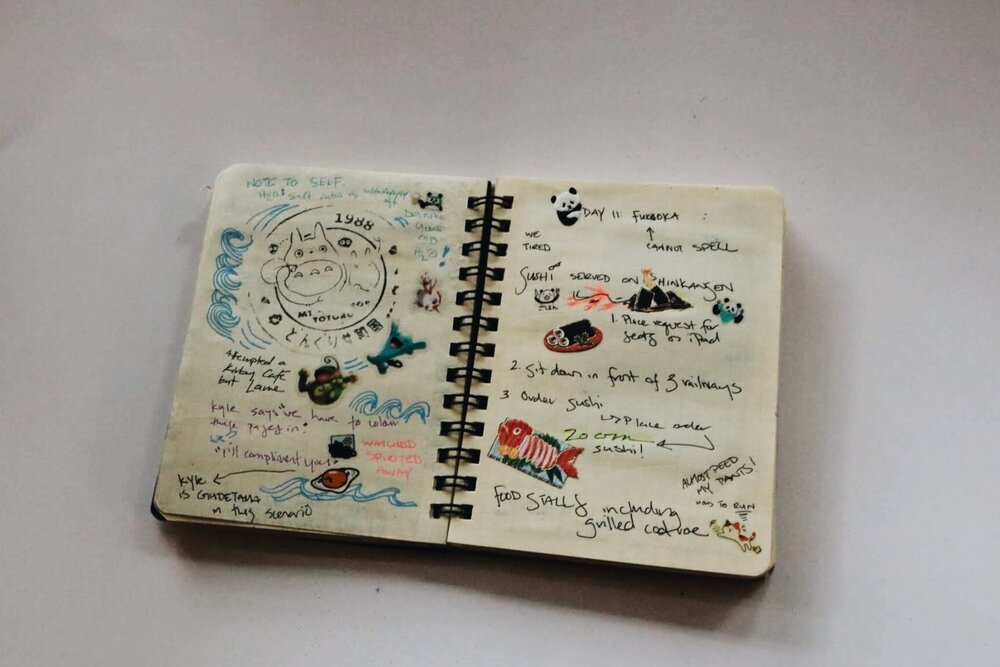 NOTE TO SELF.
H2O: salt ratio is WAAAAAY
off
Drink
your
H2O!
1988
MY TOTORO
どんぐり共和国
Attempted a
Kirby Cafe
but Lame
Kyle says "we have to colour
these pages in."
we?
"I'll compliment you"
WATCHED
SPIRITED
AWAY
Kyle
is GUDETAMA
in this scenario
DAY 11: FUKUOKA
CANNOT SPELL
WE
TIRED
SUSHI SERVED ON SHINKANSEN
1. Place request for
seats on iPad
2. Sit down in front of 3 railways
3 Order Sushi
Place order
ZOOM
sushi!
ALMOST PEED
MY PANTS!
HAD TO RUN
FOOD STALLS including
grilled cod roe